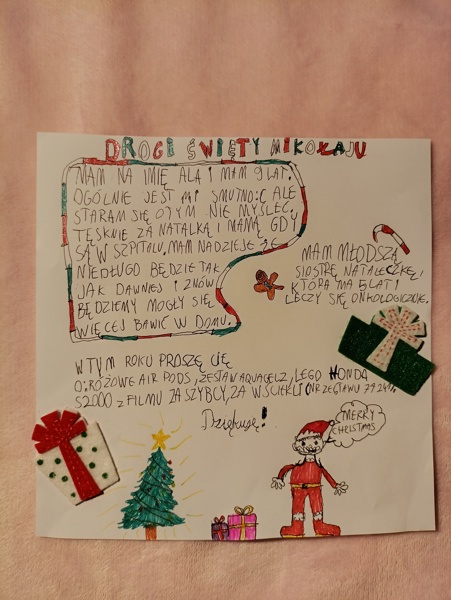 DROGI ŚWIĘTY MIKOŁAJU
MAM NA IMIĘ ALA I MAM 9 LAT.
OGÓLNIE JEST MI SMUTNO:( ALE
STARAM SIĘ O TYM NIE MYŚLEĆ.
TĘSKNIĘ ZA NATALKĄ I MAMĄ GDY
SĄ W SZPITALU. MAM NADZIEJĘ ŻE
NIEDŁUGO BĘDZIE TAK
JAK DAWNIEJ I ZNÓW
BĘDZIEMY MOGŁY SIĘ
WIĘCEJ BAWIĆ W DOMU.
MAM MŁODSZĄ
SIOSTRĘ NATALECZKĘ,
KTÓRA MA 5 LAT I
LECZY SIĘ ONKOLOGICZNIE.
W TYM ROKU PROSZĘ CIĘ
O: RÓŻOWE AIR PODS, ZESTAW AQUAGELZ, LEGO HONDA
S2000 Z FILMU ZA SZYBCY, ZA WŚCIEKLI (NR ZESTAWU
Dziękuję!
MERRY
CHRISTMAS